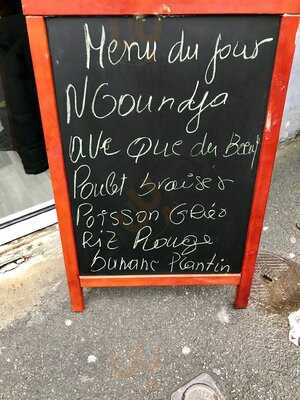 Menu du jour
NGoundja
avec que du Boeuf
Poulet braiser
Poisson
Riz Rouge
banane Plantin